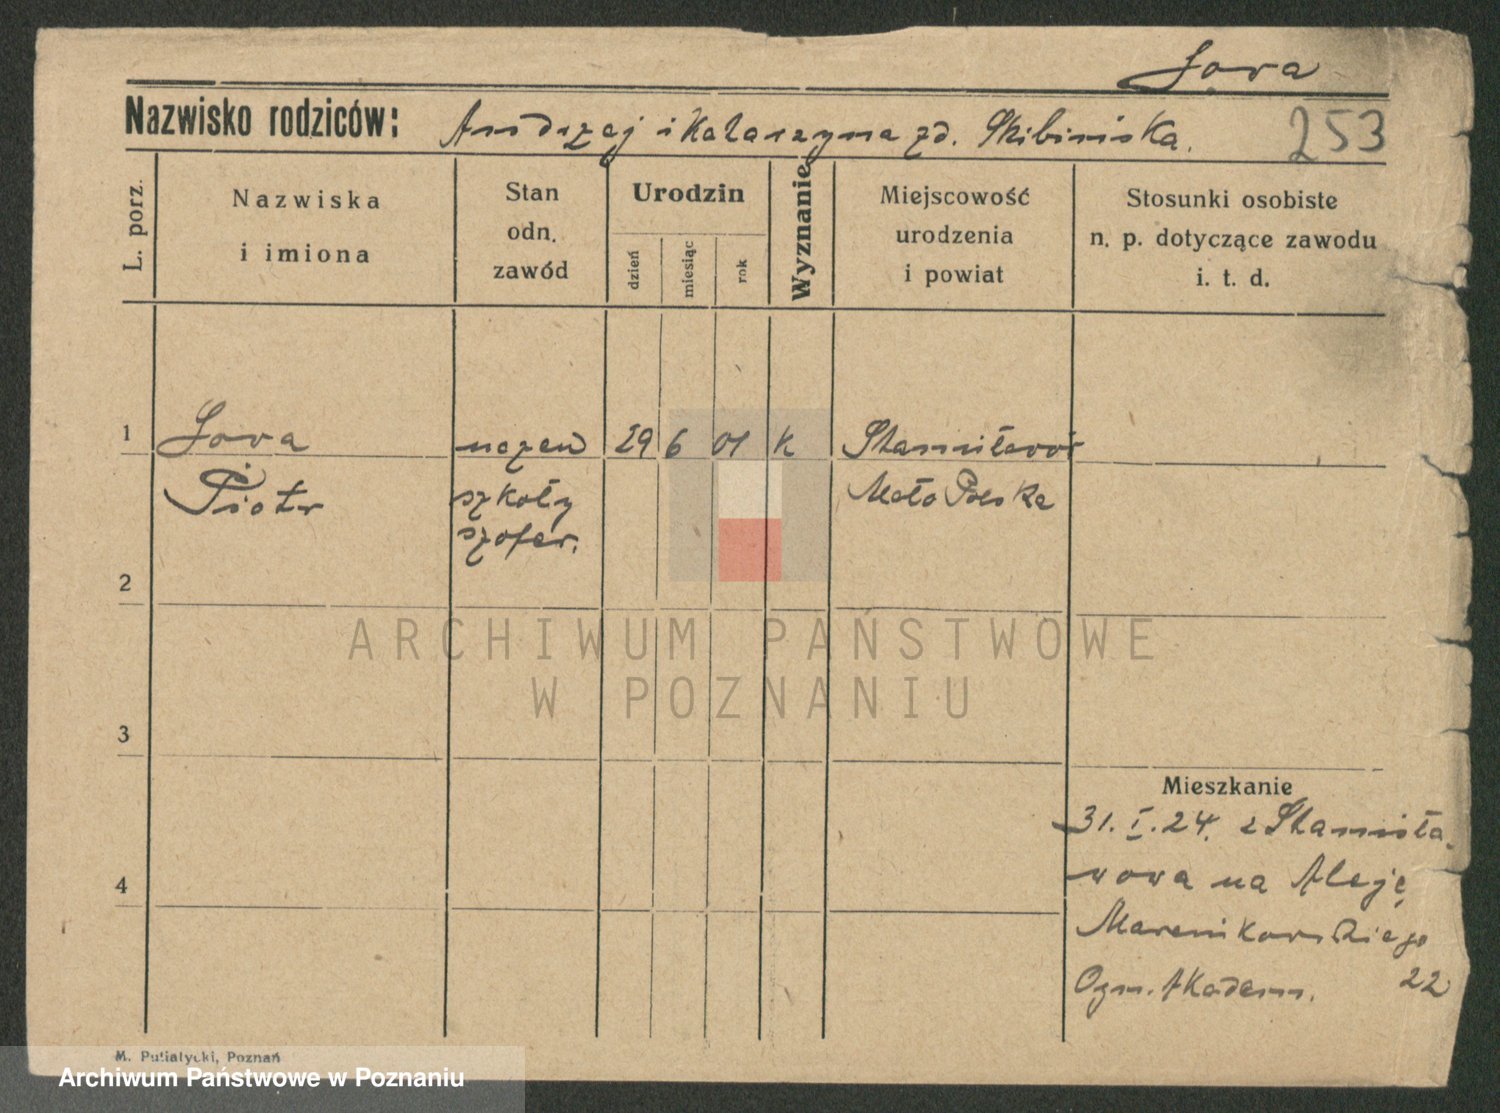 Sowa
Nazwisko rodziców: Andrzej i Katarzyna zd. Skibinska.
253
L. porz.
Nazwiska
i imiona
Stan
odn.
zawód
Urodzin
dzień
miesiąc
rok
Wyznanie
Miejscowość
urodzenia
i powiat
Stosunki osobiste
n. p. dotyczące zawodu
i. t. d.
1 Sowa uczeń 29 6 01 K Stanisławów
Piotr szkoły Mało Polska
szofer.
2
ARCHIWUM PAŃSTWOWE
W POZNANIU
3
Mieszkanie
31. I. 24. z Stanisła-
wowa na Aleję
4
Marcinkowskiego
22
M. Putiatycki, Poznań
Archiwum Państwowe w Poznaniu